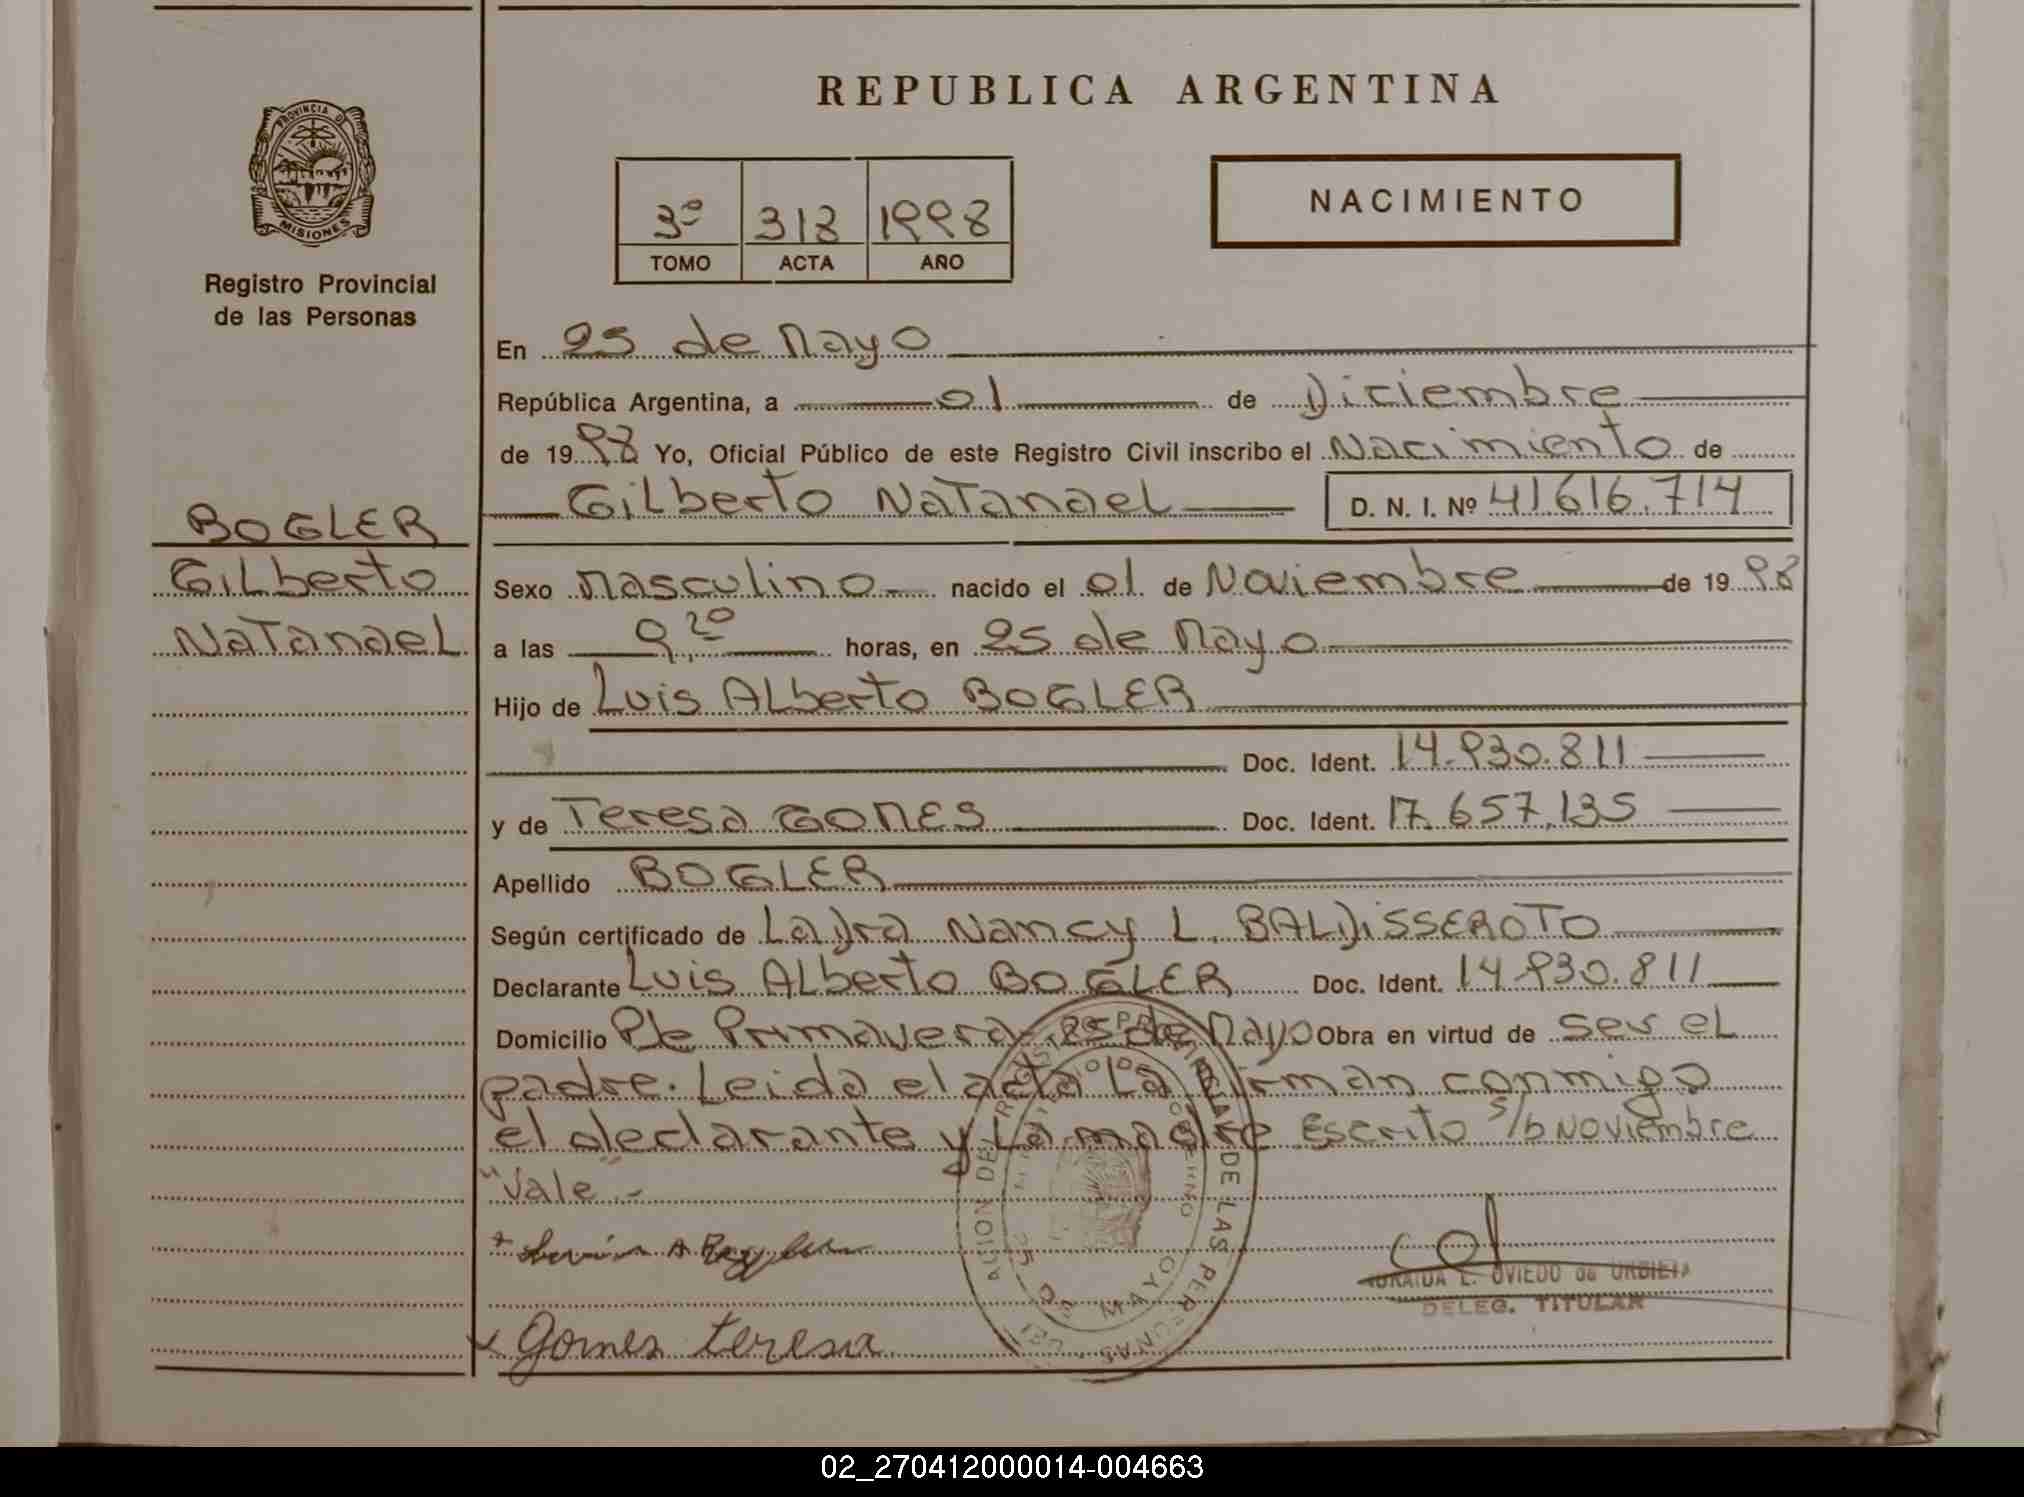 REPUBLICA ARGENTINA
PROVINCIA D MISIONES
Registro Provincial
de las Personas
3º 318 1998
TOMO ACTA AÑO
NACIMIENTO
En 25 de Mayo
República Argentina, a 01 de Diciembre
de 1998 Yo, Oficial Público de este Registro Civil inscribo el Nacimiento de
Gilberto Natanael D. N. I. Nº 41.616.714
BOGLER
Gilberto
Natanael
Sexo Masculino nacido el 01 de Noviembre de 1998
a las 9,20 horas, en 25 de Mayo
Hijo de Luis Alberto BOGLER
Doc. Ident. 14.930.811
y de Teresa GOMES Doc. Ident. 17.657.135
Apellido BOGLER
Según certificado de La Dra Nancy L. BALDISSEROTO
Declarante Luis Alberto BOGLER Doc. Ident. 14.930.811
Domicilio Pje Primavera-25 de Mayo Obra en virtud de ser el
padre. Leida el acta La firman conmigo
el declarante y La madre Escrito s/b Noviembre
"Vale".-
Gomes teresa
L. OVIEDO de URBIETA
DELEG. TITULAR
25 DE MAYO
02_270412000014-004663